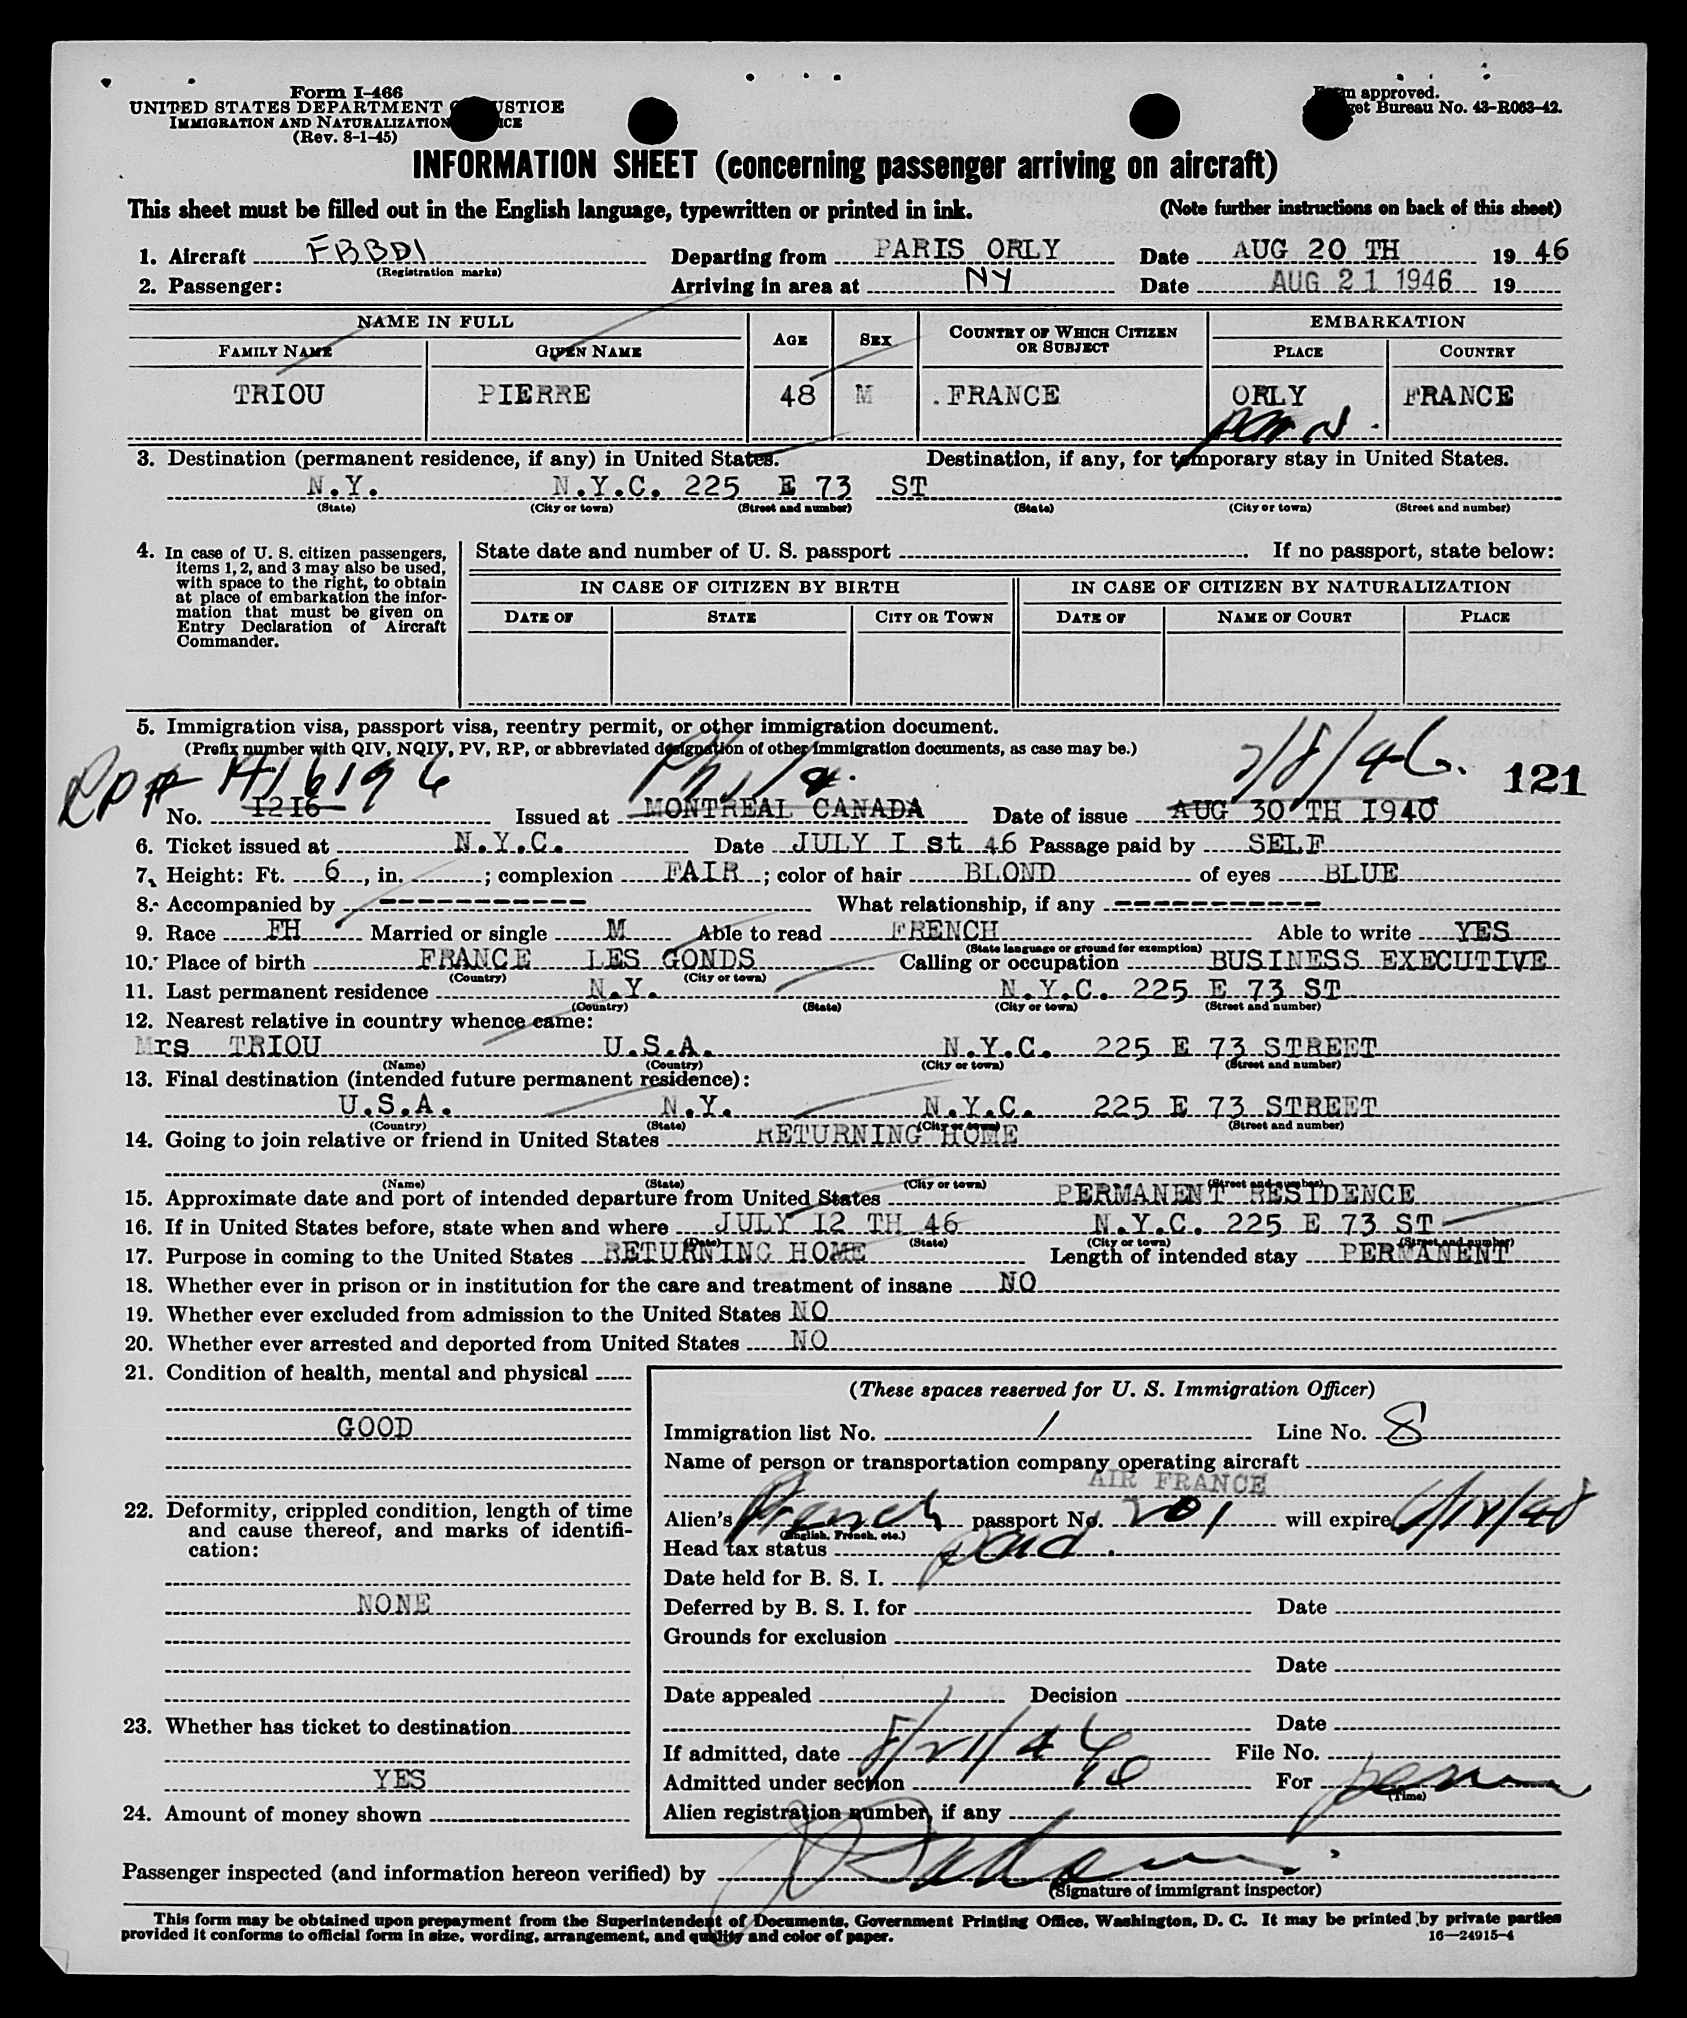 Form I-466
UNITED STATES DEPARTMENT OF JUSTICE
IMMIGRATION AND NATURALIZATION SERVICE
(Rev. 8-1-45)
Form approved.
Budget Bureau No. 43-R063-42.
INFORMATION SHEET (concerning passenger arriving on aircraft)
This sheet must be filled out in the English language, typewritten or printed in ink. (Note further instructions on back of this sheet)
1. Aircraft FBBDI Departing from PARIS ORLY Date AUG 20 TH 19 46
(Registration marks)
2. Passenger: Arriving in area at NY Date AUG 21 1946 19
NAME IN FULL AGE SEX COUNTRY OF WHICH CITIZEN OR SUBJECT EMBARKATION
FAMILY NAME GIVEN NAME PLACE COUNTRY
TRIOU PIERRE 48 M .FRANCE ORLY FRANCE
Paris
3. Destination (permanent residence, if any) in United States. Destination, if any, for temporary stay in United States.
N.Y. N.Y.C. 225 E 73 ST
(State) (City or town) (Street and number) (State) (City or town) (Street and number)
4. In case of U. S. citizen passengers, items 1, 2, and 3 may also be used, with space to the right, to obtain at place of embarkation the information that must be given on Entry Declaration of Aircraft Commander.
State date and number of U. S. passport If no passport, state below:
IN CASE OF CITIZEN BY BIRTH IN CASE OF CITIZEN BY NATURALIZATION
DATE OF STATE CITY OR TOWN DATE OF NAME OF COURT PLACE
5. Immigration visa, passport visa, reentry permit, or other immigration document.
(Prefix number with QIV, NQIV, PV, RP, or abbreviated designation of other immigration documents, as case may be.)
RP# H16196 Phila. 7/8/46. 121
No. I2I6 Issued at MONTREAL CANADA Date of issue AUG 30 TH I940
6. Ticket issued at N.Y.C. Date JULY I st 46 Passage paid by SELF
7. Height: Ft. 6, in. ; complexion FAIR ; color of hair BLOND of eyes BLUE
8. Accompanied by ------------- What relationship, if any -------------
9. Race FH Married or single M Able to read FRENCH Able to write YES
(State language or ground for exemption)
10. Place of birth FRANCE LES GONDS Calling or occupation BUSINESS EXECUTIVE
(Country) (City or town)
11. Last permanent residence N.Y. N.Y.C. 225 E 73 ST
(Country) (State) (City or town) (Street and number)
12. Nearest relative in country whence came:
Mrs TRIOU U.S.A. N.Y.C. 225 E 73 STREET
(Name) (Country) (City or town) (Street and number)
13. Final destination (intended future permanent residence):
U.S.A. N.Y. N.Y.C. 225 E 73 STREET
(Country) (State) (City or town) (Street and number)
14. Going to join relative or friend in United States RETURNING HOME
(Name) (State) (City or town) (Street and number)
15. Approximate date and port of intended departure from United States PERMANENT RESIDENCE
16. If in United States before, state when and where JULY I2 TH 46 N.Y.C. 225 E 73 ST
(Date) (State) (City or town) (Street and number)
17. Purpose in coming to the United States RETURNING HOME Length of intended stay PERMANENT
18. Whether ever in prison or in institution for the care and treatment of insane NO
19. Whether ever excluded from admission to the United States NO
20. Whether ever arrested and deported from United States NO
21. Condition of health, mental and physical
GOOD
22. Deformity, crippled condition, length of time and cause thereof, and marks of identification:
NONE
23. Whether has ticket to destination
YES
24. Amount of money shown
(These spaces reserved for U. S. Immigration Officer)
Immigration list No. 1 Line No. 8
Name of person or transportation company operating aircraft
AIR FRANCE
Alien's French passport No. 201 will expire 6/12/48
(English, French, etc.)
Head tax status paid.
Date held for B. S. I.
Deferred by B. S. I. for Date
Grounds for exclusion
Date
Date appealed Decision
Date
If admitted, date 8/21/46 File No.
Admitted under section For perm
(Time)
Alien registration number, if any
Passenger inspected (and information hereon verified) by
(Signature of immigrant inspector)
This form may be obtained upon prepayment from the Superintendent of Documents, Government Printing Office, Washington, D. C. It may be printed by private parties
provided it conforms to official form in size, wording, arrangement, and quality and color of paper. 16—24915-4